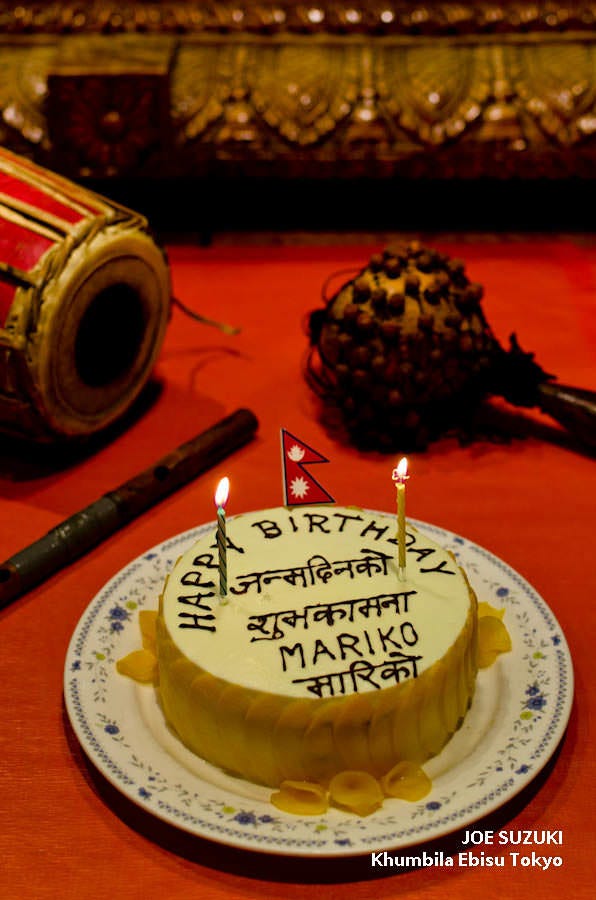 HAPPY BIRTHDAY
जन्मदिनको
शुभकामना
MARIKO
मारिको
JOE SUZUKI
Khumbila Ebisu Tokyo